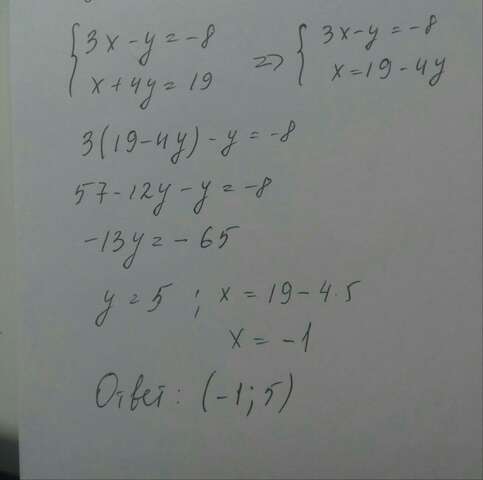 {3x-y=-8 => {3x-y=-8
x+4y=19 x=19-4y
3(19-4y)-y=-8
57-12y-y=-8
-13y=-65
y=5 ; x=19-4·5
x=-1
Ответ: (-1;5)